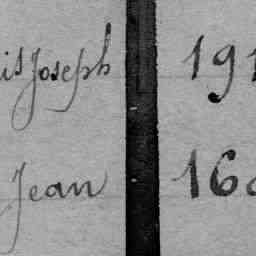 is Joseph 191
Jean 160